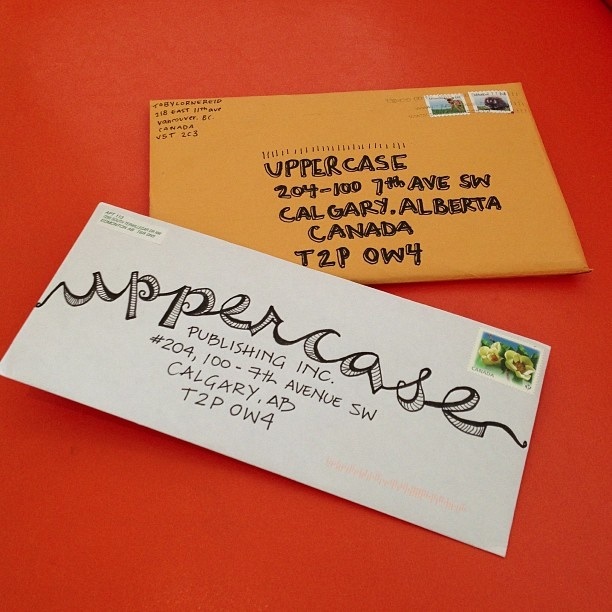 TOBY CORNEREID
218 EAST 11th AVE
VANCOUVER. BC.
CANADA
V5T 2C3
UPPERCASE
204-100 7th AVE SW
CALGARY. ALBERTA
CANADA
T2P 0W4
APT 112
uppercase
PUBLISHING INC.
#204, 100 - 7th AVENUE SW
CALGARY, AB
T2P 0W4
CANADA
P